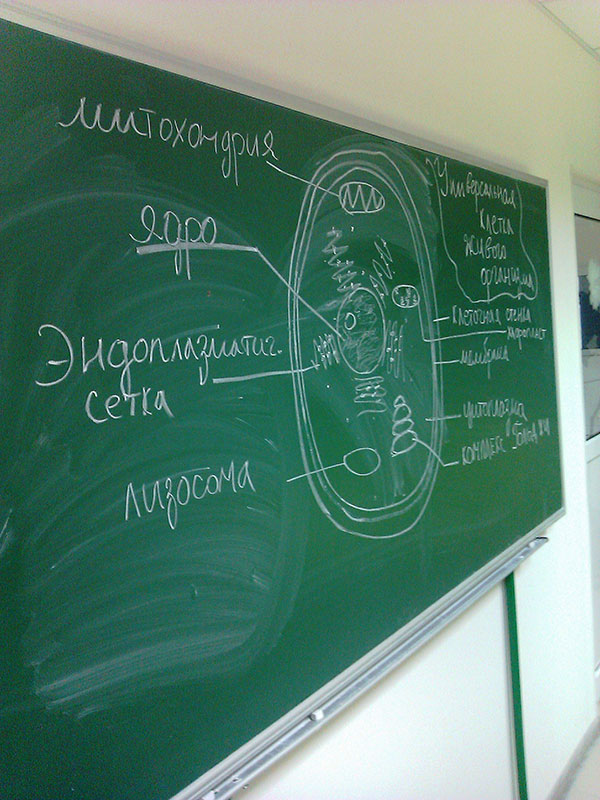 митохондрия
ядро
Эндоплазматич.
сетка
лизосома
Универсальная
клетка
живого
организма
клеточная стенка
хлоропласт
мембрана
цитоплазма
комплекс Гольджи